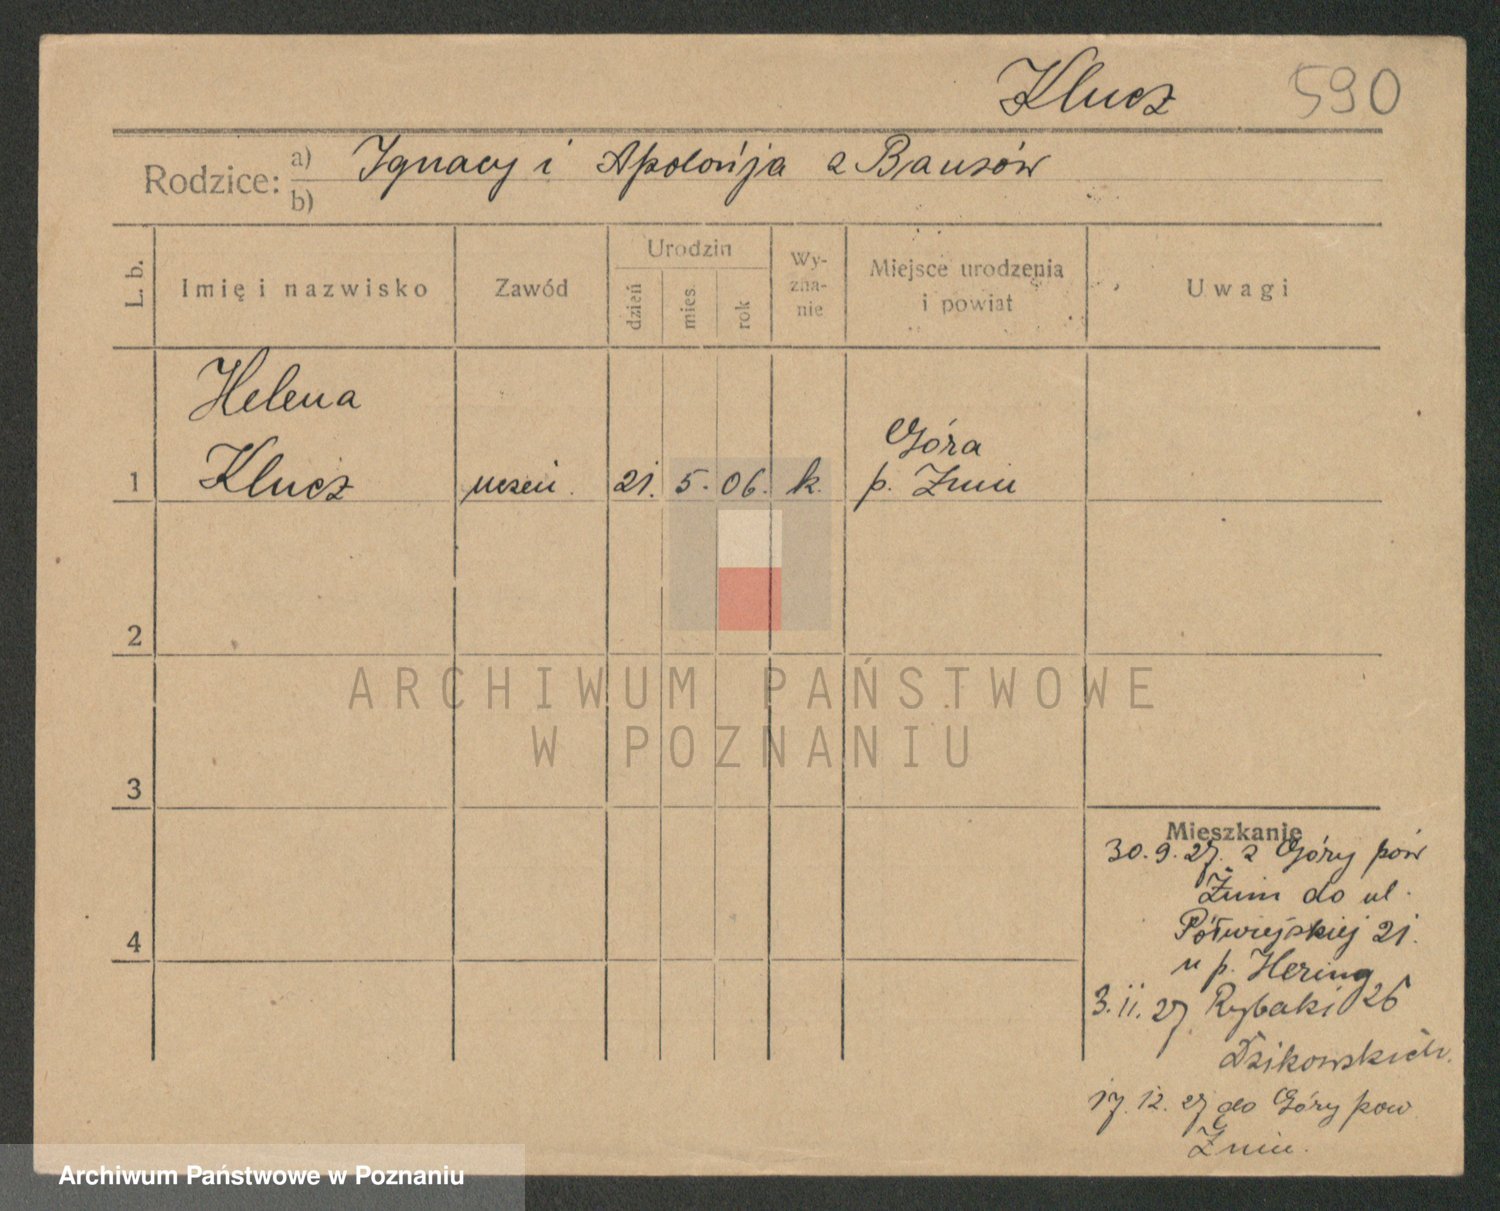 Klucz 590
Rodzice: a) Ignacy i Apolońja z Bauzów
b)
L. b. Imię i nazwisko Zawód Urodzin dzień mies. rok Wyznanie Miejsce urodzenia i powiat Uwagi
Helena
1 Klucz uczeń. 21. 5. 06. k. Góra
p. Żnin
2
3
4
Mieszkanie
30.9.27. z Góry pow
Żnin do ul.
Półwiejskiej 21.
u p. Hering
3.11.27 Rybaki 26
Dzikowskich.
17.12.27 do Góry pow
Żnin.
ARCHIWUM PAŃSTWOWE
W POZNANIU
Archiwum Państwowe w Poznaniu